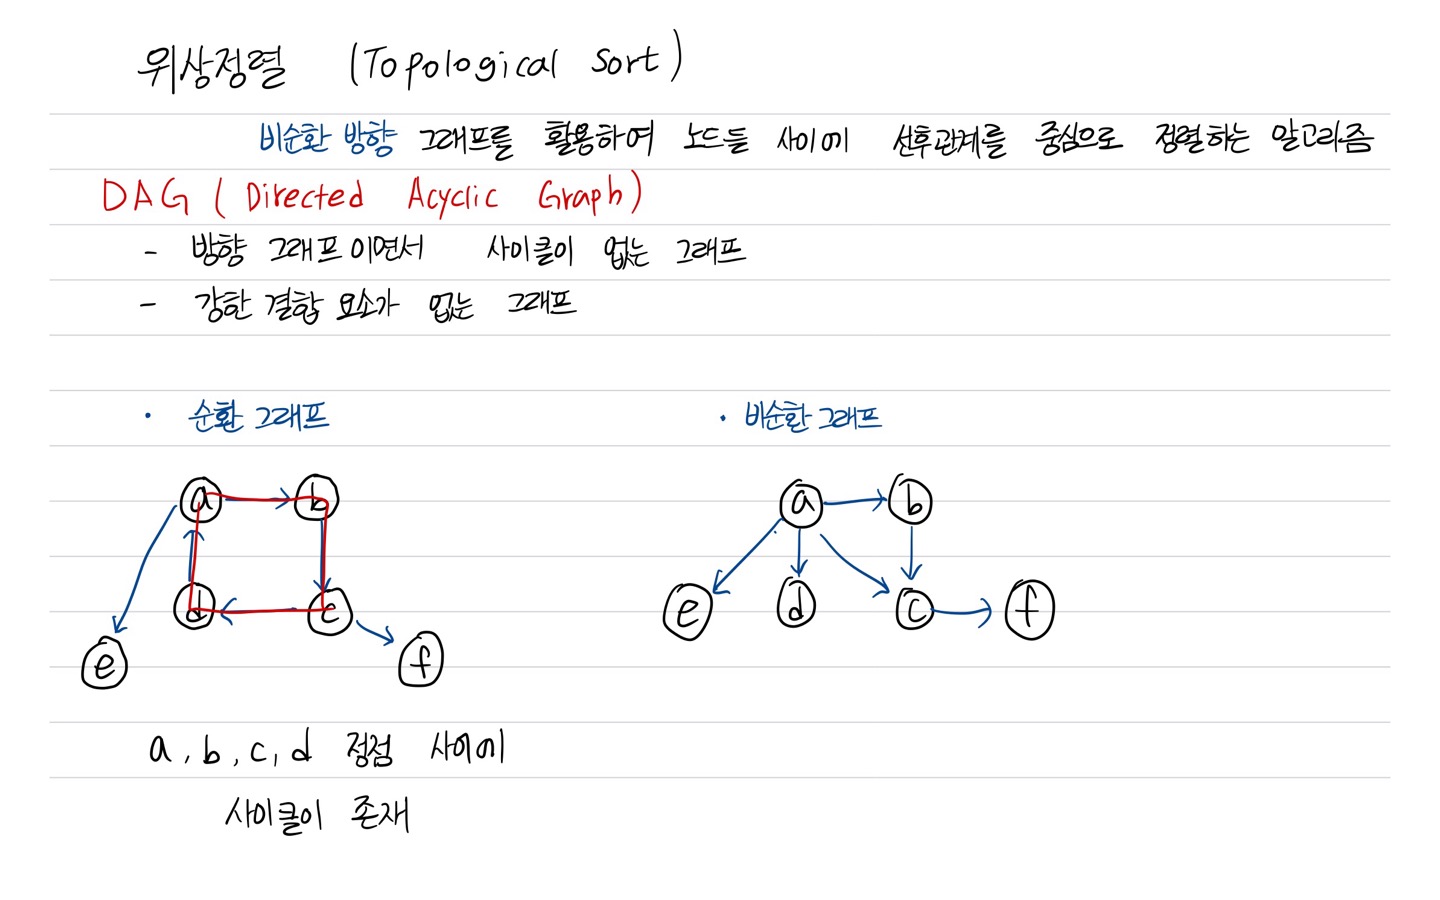 위상정렬 (Topological Sort)
비순환 방향 그래프를 활용하여 노드들 사이에 선후관계를 중심으로 정렬하는 알고리즘
DAG (Directed Acyclic Graph)
- 방향 그래프이면서 사이클이 없는 그래프
- 강한 결합 요소가 없는 그래프
• 순환 그래프
• 비순환 그래프
a b
d c
e f
a b
e d c f
a, b, c, d 정점 사이에
사이클이 존재